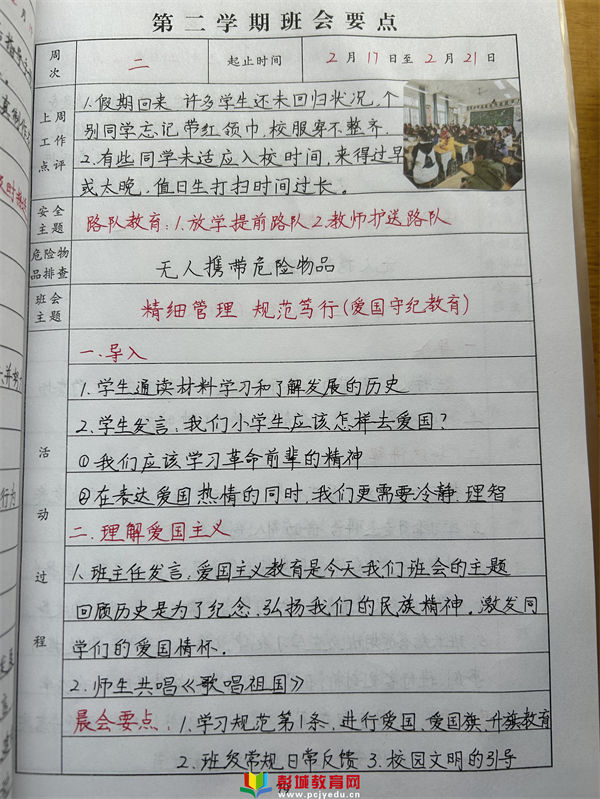 第二学期班会要点
周次 二 起止时间 2月17日至2月21日
上周工作点评
1.假期回来 许多学生还未回归状况,个
别同学忘记带红领巾,校服穿不整齐.
2.有些同学未适应入校时间,来得过早
或太晚,值日生打扫时间过长.
安全主题 路队教育:1.放学提前路队2.教师护送路队
危险物品排查 无人携带危险物品
班会主题 精细管理 规范笃行(爱国守纪教育)
活动过程
一.导入
1.学生通读材料学习和了解发展的历史
2.学生发言:我们小学生应该怎样去爱国?
①我们应该学习革命前辈的精神
②在表达爱国热情的同时,我们更需要冷静.理智
二.理解爱国主义
1.班主任发言:爱国主义教育是今天我们班会的主题
回顾历史是为了纪念、弘扬我们的民族精神,激发同
学们的爱国情怀.
2.师生共唱《歌唱祖国》
晨会要点:1.学习规范第1条,进行爱国、爱国旗、升旗教育
2.班级常规日常反馈 3.校园文明的引导
彭城教育网
www.pcjyedu.cn